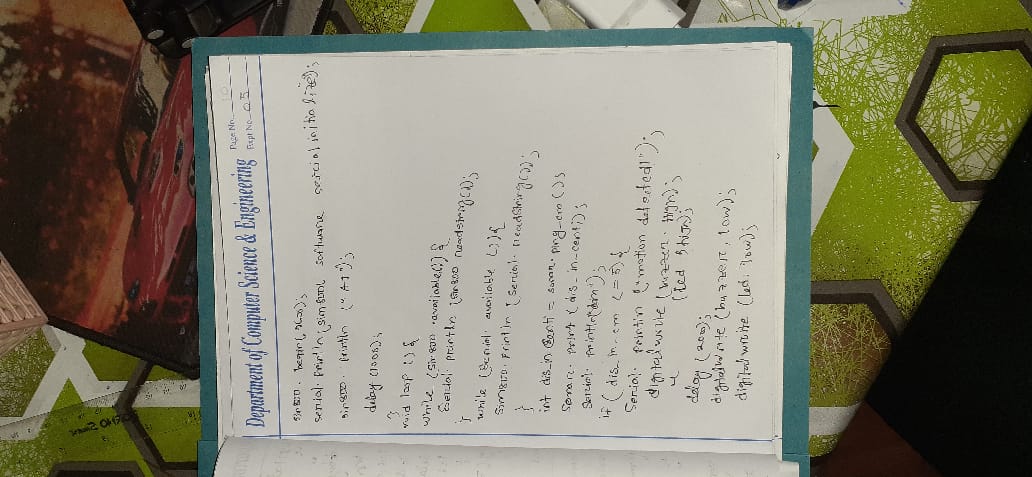 Department of Computer Science & Engineering
Page No.
Expt No. 05
sim800. begin(9600);
serial. println (sim800L software serial initialized);
sim800. println ("AT");
delay (1000);
}
void loop () {
while (sim800. available()) {
Serial. println (sim800 readstring());
}
while (Serial. available ()) {
sim800. println (serial. readstring());
}
int dis_in centi = sonar. ping_cm ();
sonar. print (dis_in-centi);
serial. println("cm");
if (dis_in-cm <=5) {
Serial. println ("motion detected!");
digitalwrite (buzzer. high);
" (led high);
delay (200);
digitalwrite (buzzer, low);
digitalwrite (led. low);